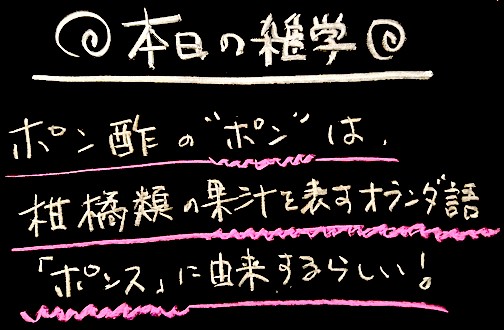 本日の雑学
ポン酢の"ポン"は、
柑橘類の果汁を表すオランダ語
「ポンス」に由来するらしい!